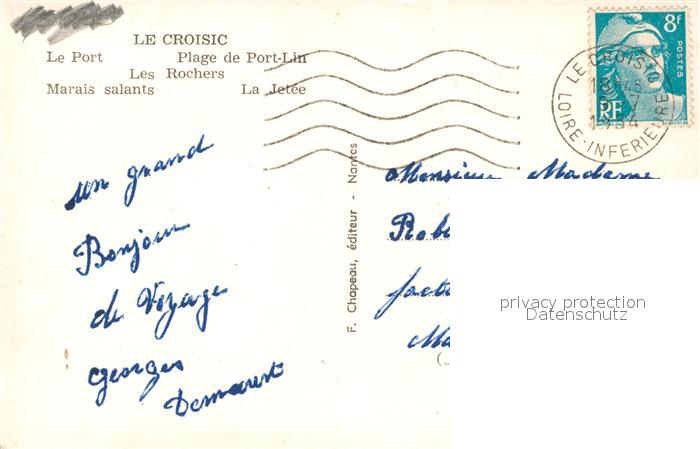 LE CROISIC
Le Port Plage de Port-Lin
Les Rochers
Marais salants La Jetée
8f
POSTES
RF
LE CROISIC
18H45
1954
LOIRE-INFERIEURE
un grand
Bonjour
de Voyage
Georges
Demarest
F. Chapeau, éditeur - Nantes
Monsieur Madame
Robe
facte
Ma
(..
privacy protection
Datenschutz